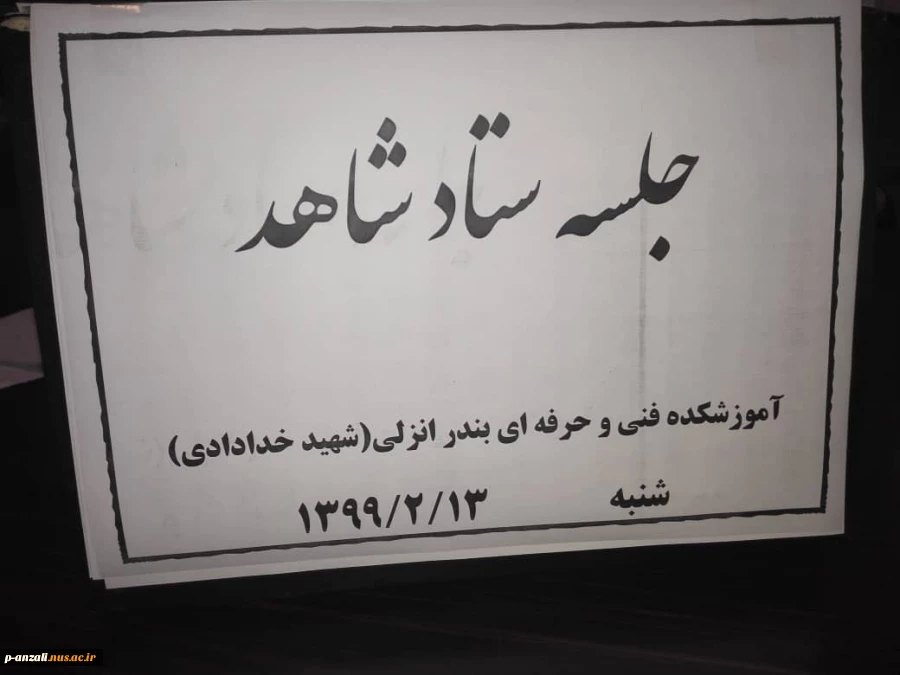 جلسه ستاد شاهد
آموزشکده فنی و حرفه ای بندر انزلی(شهید خدادادی)
شنبه ۱۳۹۹/۲/۱۳
p-anzali.nus.ac.ir